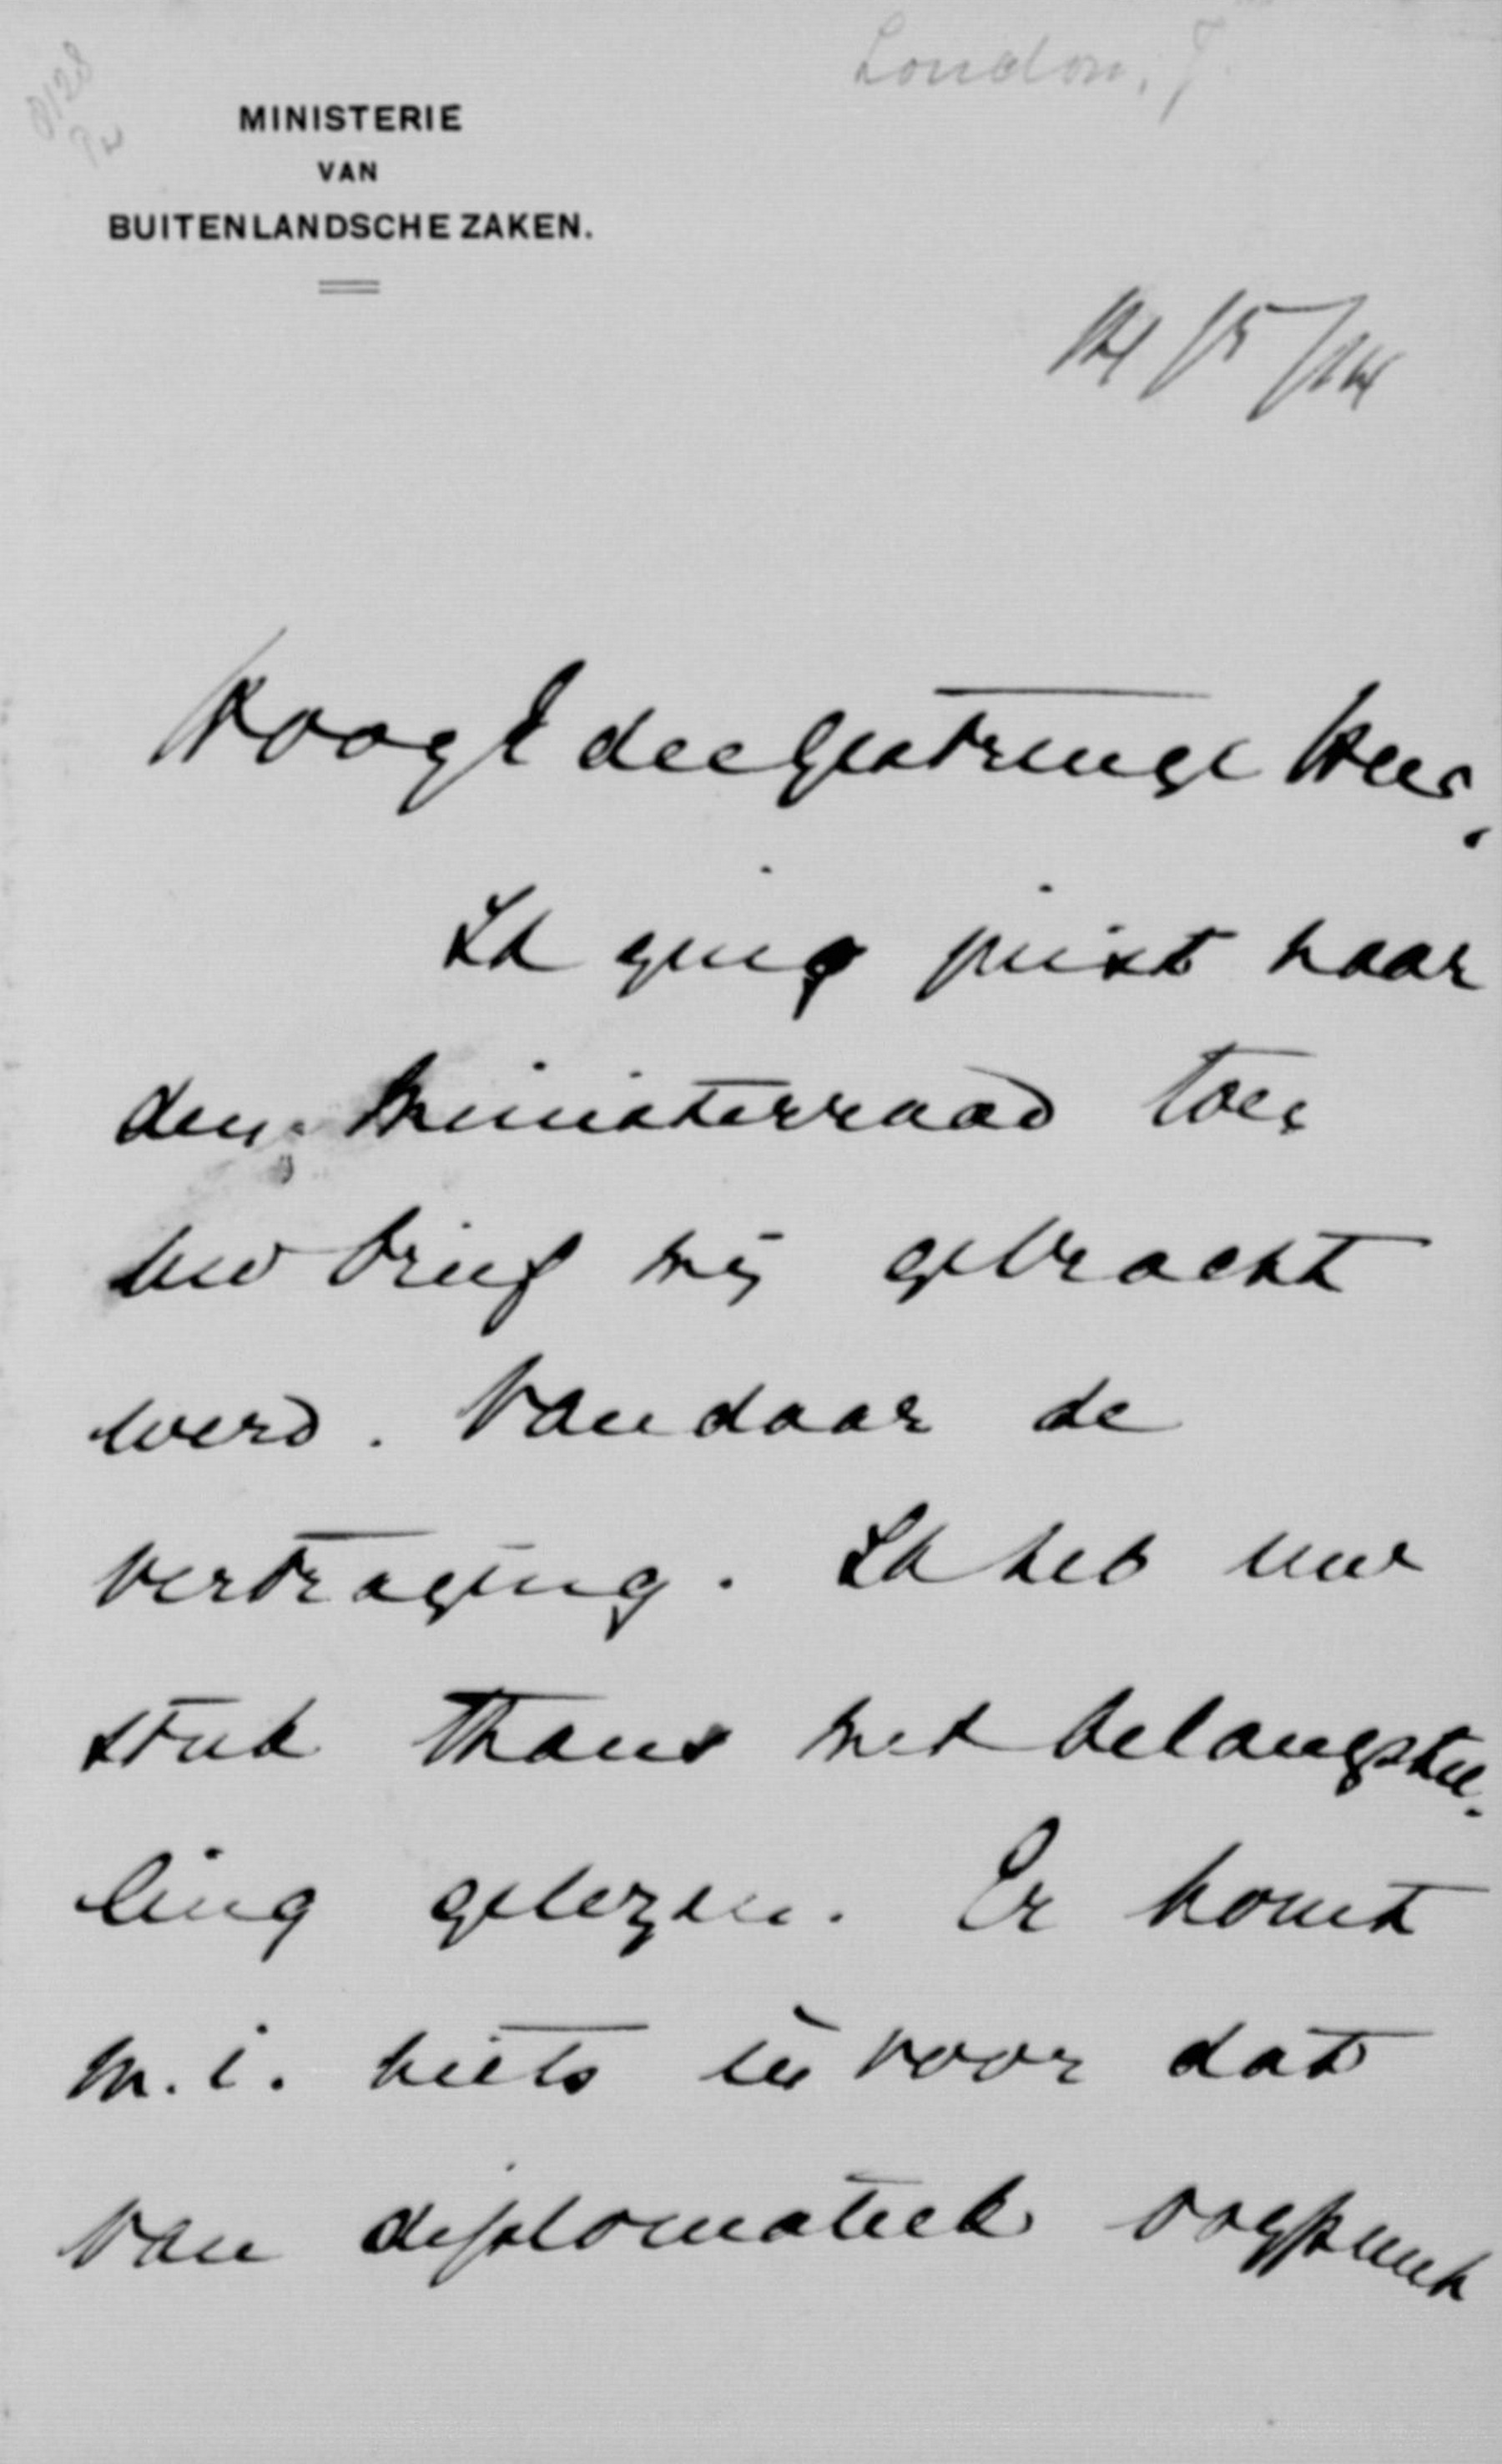 London, J.
8128
MINISTERIE
VAN
BUITENLANDSCHE ZAKEN.
14/5/14
HoogEdelGestrenge Heer,
Ik ging juist naar
den Ministerraad toen
uw brief mij gebracht
werd. Vandaar de
vertraging. Ik heb uw
stuk thans met belangstel-
ling gelezen. Er komt
m.i. niets in voor dat
van diplomatiek oogpunt